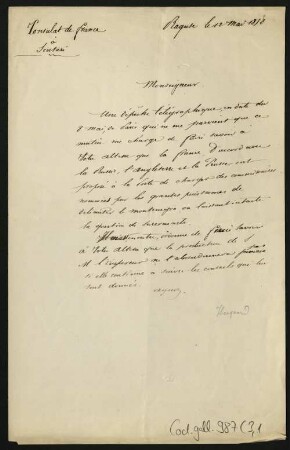 Consulat de France
à
Scutari
Raguse le 12 mai 1858
Monseigneur
Une dépêche télégraphique, en date du
8 mai, de Paris qui ne me parvient que ce
matin me charge de faire savoir à
Votre Altesse que la France d'accord avec
la Russie, l'Angleterre et la Prusse ont
proposé à la Porte de charger des commissaires
nommés par les grandes puissances de
délimiter le Montenegro en laissant intacte
la question de Suzeraineté
de faire savoir
à Votre Altesse que la protection de
M l'Empereur ne l'abandonnera jamais
si elle continue à suivre les conseils que lui
sont donnés.
Cod. gall. 987 (31